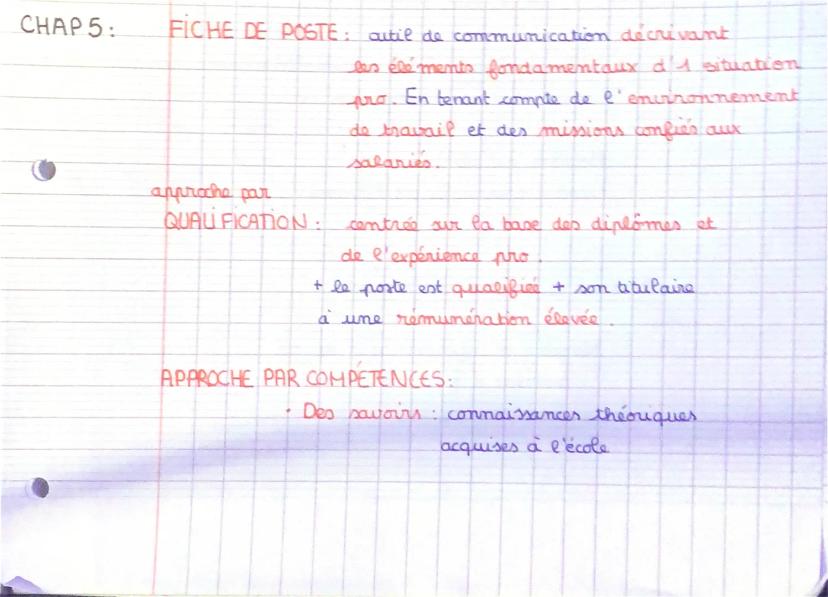 CHAP 5 : FICHE DE POSTE : outil de communication décrivant
les éléments fondamentaux d'1 situation
pro. En tenant compte de l'environnement
de travail et des missions confiés aux
salariés.
approche par
QUALIFICATION : centrée sur la base des diplômes et
de l'expérience pro.
+ le poste est qualifié + son titulaire
à une rémunération élevée.
APPROCHE PAR COMPÉTENCES :
• Des savoirs : connaissances théoriques
acquises à l'école